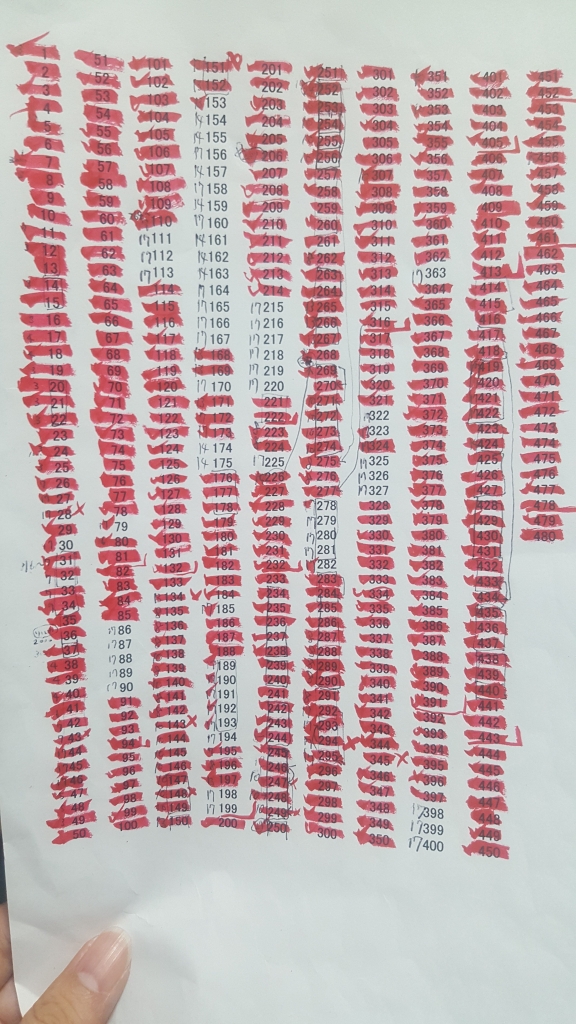 1 51 101 151 201 251 301 351 401 451
2 52 102 152 202 252 302 352 402 452
3 53 103 153 203 253 303 353 403 453
4 54 104 14 154 204 254 304 354 404 454
5 55 105 14 155 205 255 305 355 405 455
6 56 106 17 156 206 256 306 356 406 456
7 57 107 14 157 207 257 307 357 407 457
8 58 108 17 158 208 258 308 358 408 458
9 59 109 14 159 209 259 309 359 409 459
10 60 110 17 160 210 260 310 360 410 460
11 61 17 111 14 161 211 261 311 361 411 461
12 62 17 112 14 162 212 262 312 362 412 462
13 63 17 113 14 163 213 263 313 17 363 413 463
14 64 114 17 164 214 264 314 364 414 464
15 65 115 17 165 17 215 265 315 365 415 465
16 66 116 17 166 17 216 266 316 366 416 466
17 67 117 17 167 17 217 267 317 367 417 467
18 68 118 168 17 218 268 318 368 418 468
19 69 119 169 17 219 269 319 369 419 469
20 70 120 17 170 17 220 270 320 370 420 470
21 71 121 171 221 271 321 371 421 471
22 72 122 172 222 272 17 322 372 422 472
23 73 123 173 223 273 17 323 373 423 473
24 74 124 14 174 224 274 324 374 424 474
25 75 125 14 175 17 225 275 17 325 375 425 475
26 76 126 176 226 276 17 326 376 426 476
27 77 127 177 227 277 17 327 377 427 477
28 78 128 178 228 278 328 378 428 478
29 79 129 179 229 17 279 329 379 429 479
30 80 130 180 230 17 280 330 380 430 480
31 81 131 181 231 17 281 331 381 431
32 82 132 182 232 282 332 382 432
33 83 133 183 233 283 333 383 433
34 84 134 184 234 284 334 384 434
35 85 135 17 185 235 285 335 385 435
36 17 86 136 186 236 286 336 386 436
37 17 87 137 187 237 287 337 387 437
38 17 88 138 188 238 288 338 388 438
39 17 89 139 189 239 289 339 389 439
40 17 90 140 190 240 290 340 390 440
41 91 141 191 241 291 341 391 441
42 92 142 192 242 292 342 392 442
43 93 143 193 243 293 343 393 443
44 94 144 17 194 244 294 344 394 444
45 95 145 195 245 295 345 395 445
46 96 146 196 246 296 346 396 446
47 97 147 197 247 297 347 397 447
48 98 148 17 198 248 298 348 17 398 448
49 99 149 17 199 249 299 349 17 399 449
50 100 150 200 250 300 350 17 400 450